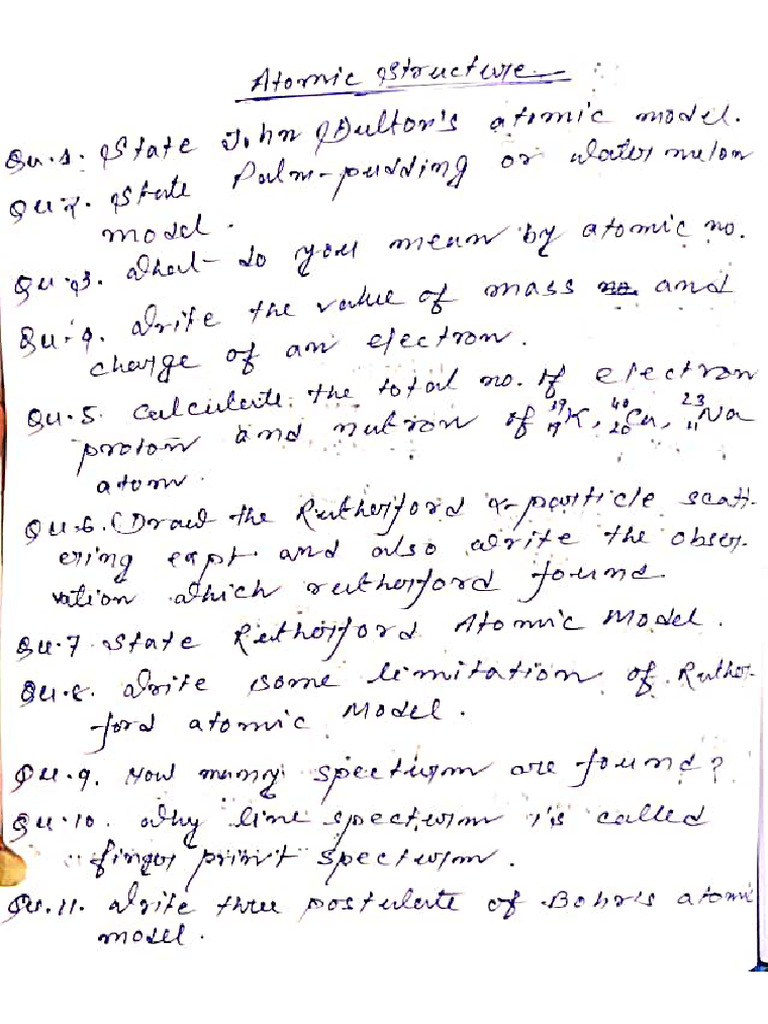 Atomic Structure
Qu.1. State John Dulton's atomic model.
Qu.2. State Palm-pudding or water melon
model.
Qu.3. What do you mean by atomic no.
Qu.4. Write the value of mass no and
charge of an electron.
Qu.5. Calculate the total no. of electron
proton and nutron of ³⁹₁₉K, ⁴⁰₂₀Ca, ²³₁₁Na
atom.
Qu.6. Draw the Rutherford α-particle scatt-
ering expt. and also write the obser-
vation which rutherford found.
Qu.7. State Rutherford Atomic Model.
Qu.8. Write some limitation of Ruther-
ford atomic Model.
Qu.9. How many spectrum are found?
Qu.10. Why line spectrum is called
finger print spectrum.
Qu.11. Write three postulate of Bohr's atomic
model.